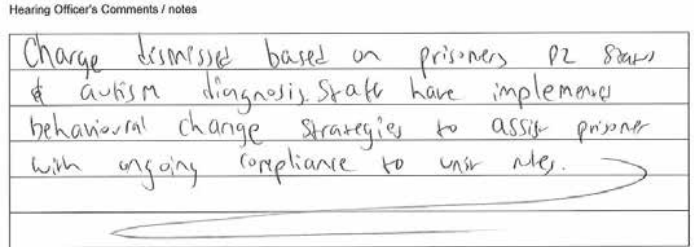 Hearing Officer's Comments / notes
Charge dismissed based on prisoners P2 status
& autism diagnosis. Staff have implemented
behavioural change strategies to assist prisoner
with ongoing compliance to unit rules.